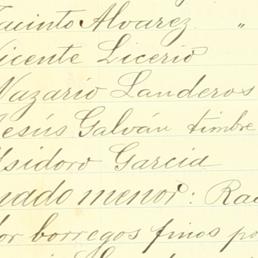 Jacinto Alvarez "
Vicente Licerio
Nazario Landeros
Jesús Galván timbre
Isidoro García
nado menor: Ra
por borregos finos po